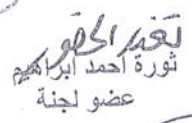 تغدر الحضور
ثورة احمد ابراهيم
عضو لجنة